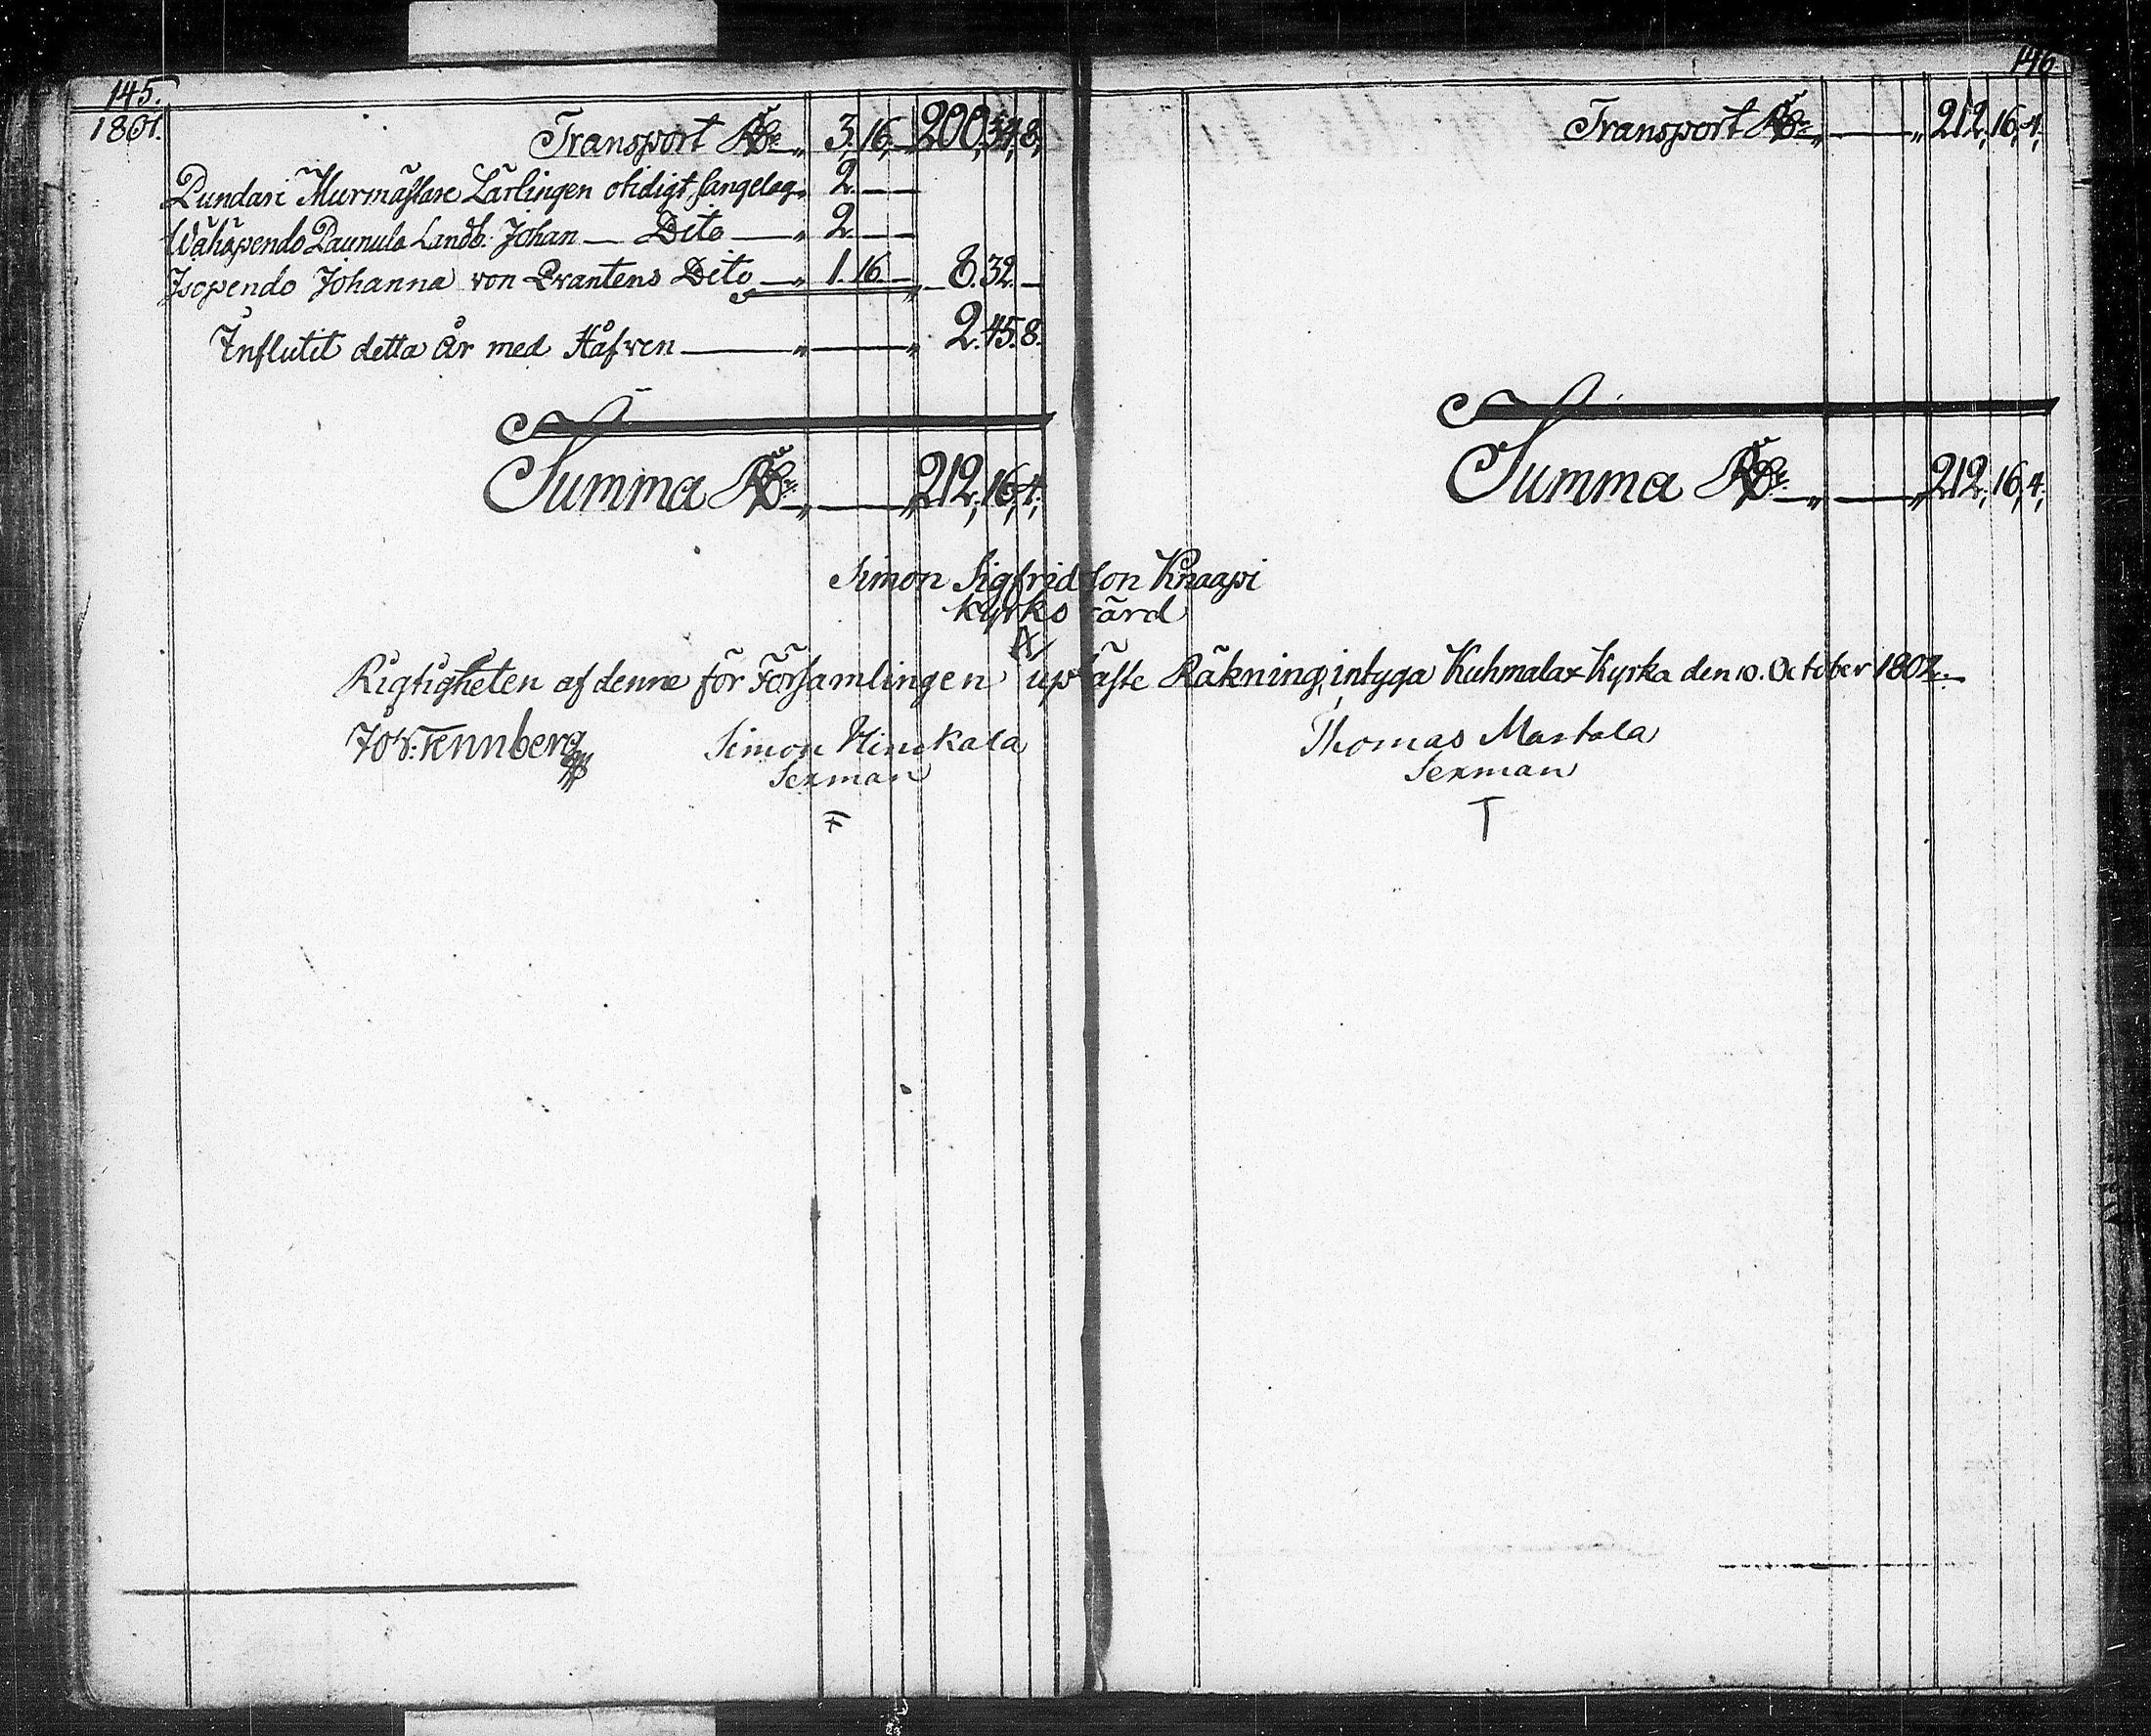 145.
1801.
Transport Rd:r „ 3,16, „ 200,34,8,
Pundari Murmästare Lärlingen otidigt sängelag „ 2. —
Wähäpendo Paunula Landb. Johan — Dito — „ 2. —
Isopendo Johanna von Qvantens Dito — „ 1. 16. — „ 8. 32. —
Influtit detta år med Håfven — „ — „ 2. 45. 8.
Summa Rd:r „ — „ 212, 16, 4,
146
Transport Rd:r „ — „ 212, 16, 4,
Summa Rd:r „ — „ 212, 16, 4,
Simon Sigfridson Knaapi
Kyrkovärd
Rigtigheten af denne för Församlingen upläste Räkning, intyga Kuhmalax Kyrka den 10. October 1802. —
Joh: Tennberg
Simon Hinckala
Sexman
Thomas Martala
Sexman
T